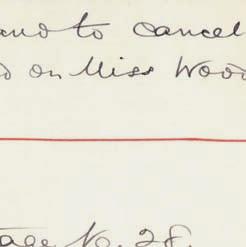 and to cancel
d on Miss Wood
age No. 28.